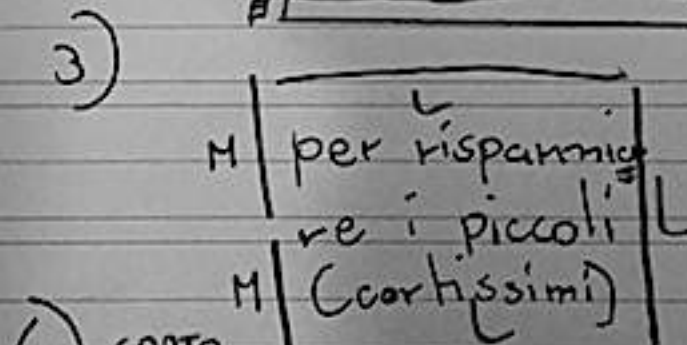 3)
L
M per rispanmia
re i piccoli L
M (cortissimi)
L